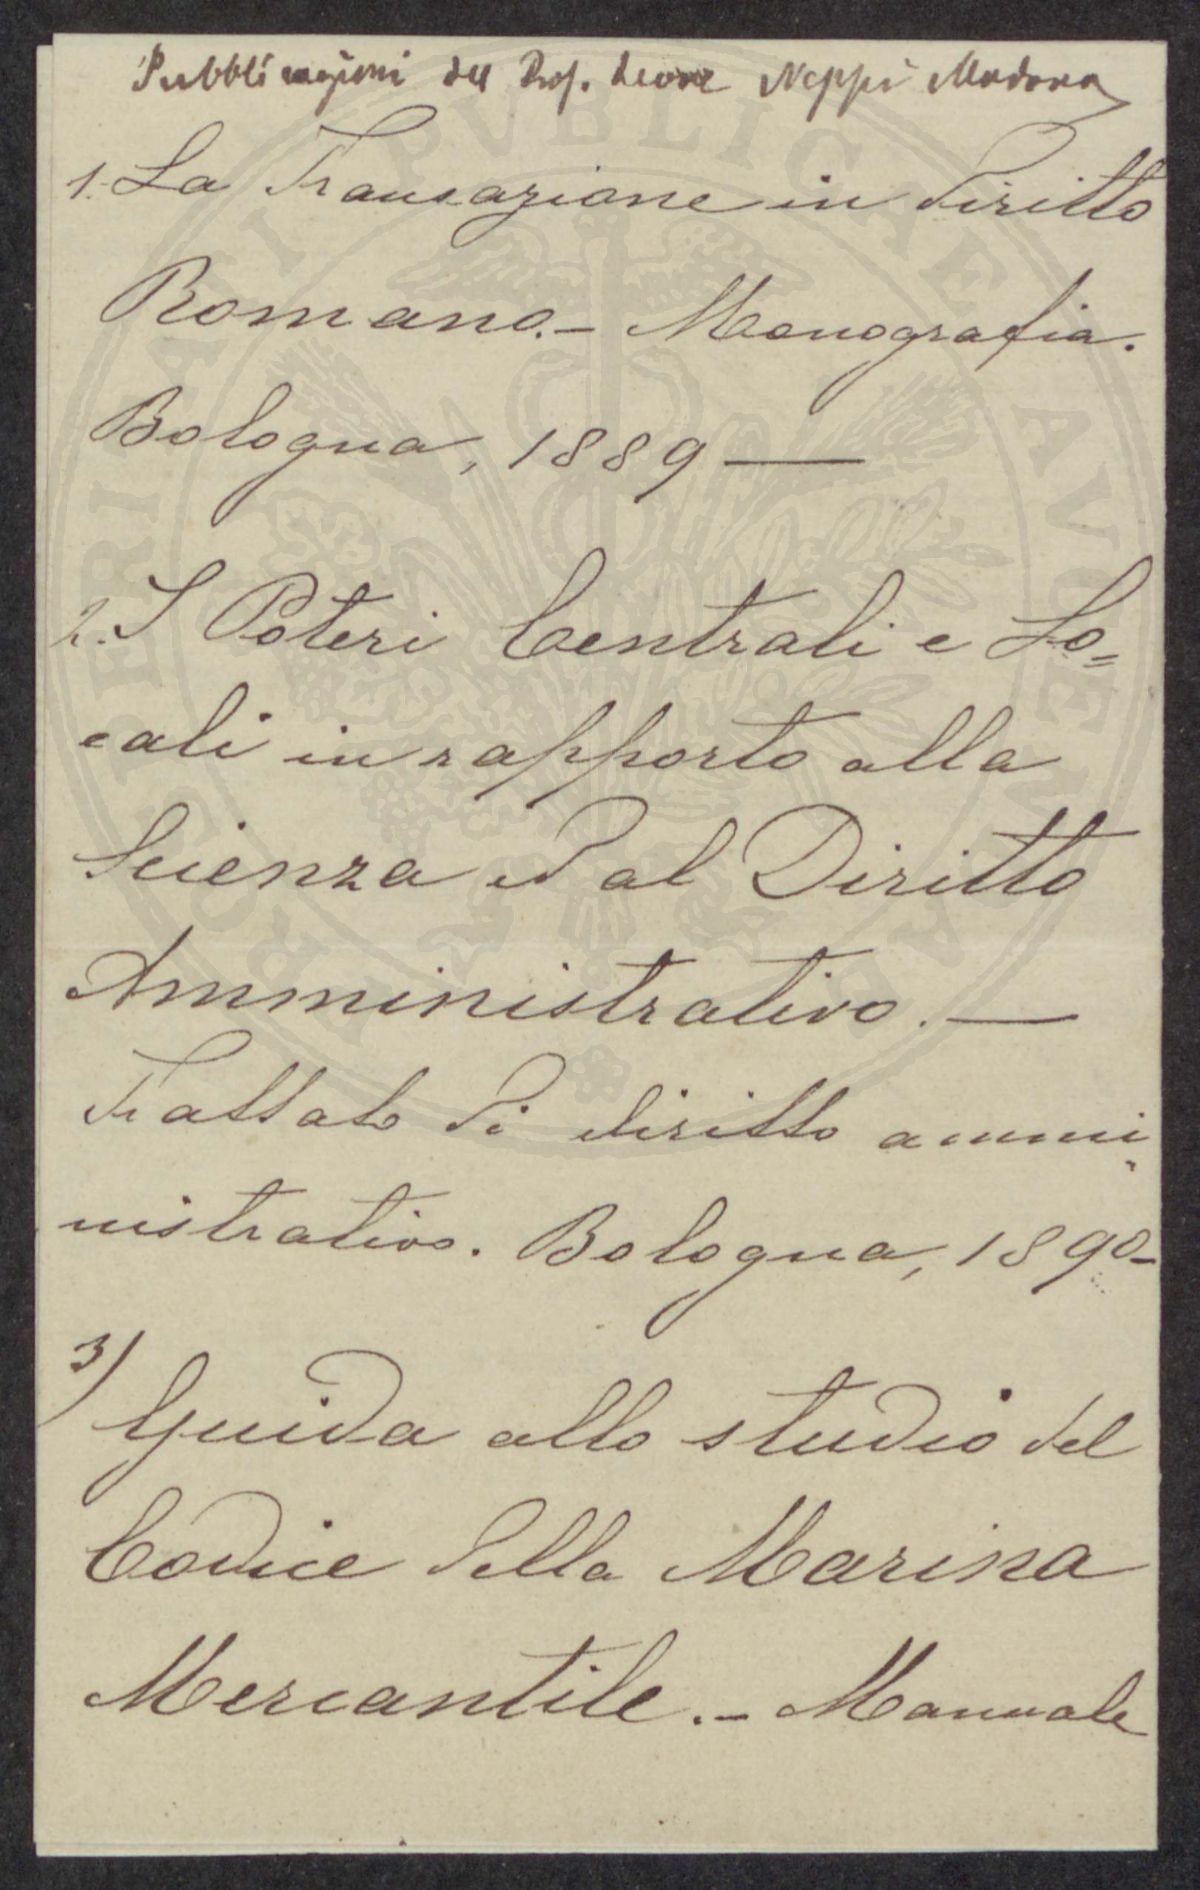 Pubblicazioni del Prof. Leone Neppi Modona
1. La Transazione in Diritto
Romano. – Monografia.
Bologna, 1889 —
2. I Poteri Centrali e Lo=
cali in rapporto alla
Scienza ed al Diritto
Amministrativo. —
Trattato di diritto ammi
nistrativo. Bologna, 1890 –
3) Guida allo studio del
Codice della Marina
Mercantile. – Manuale